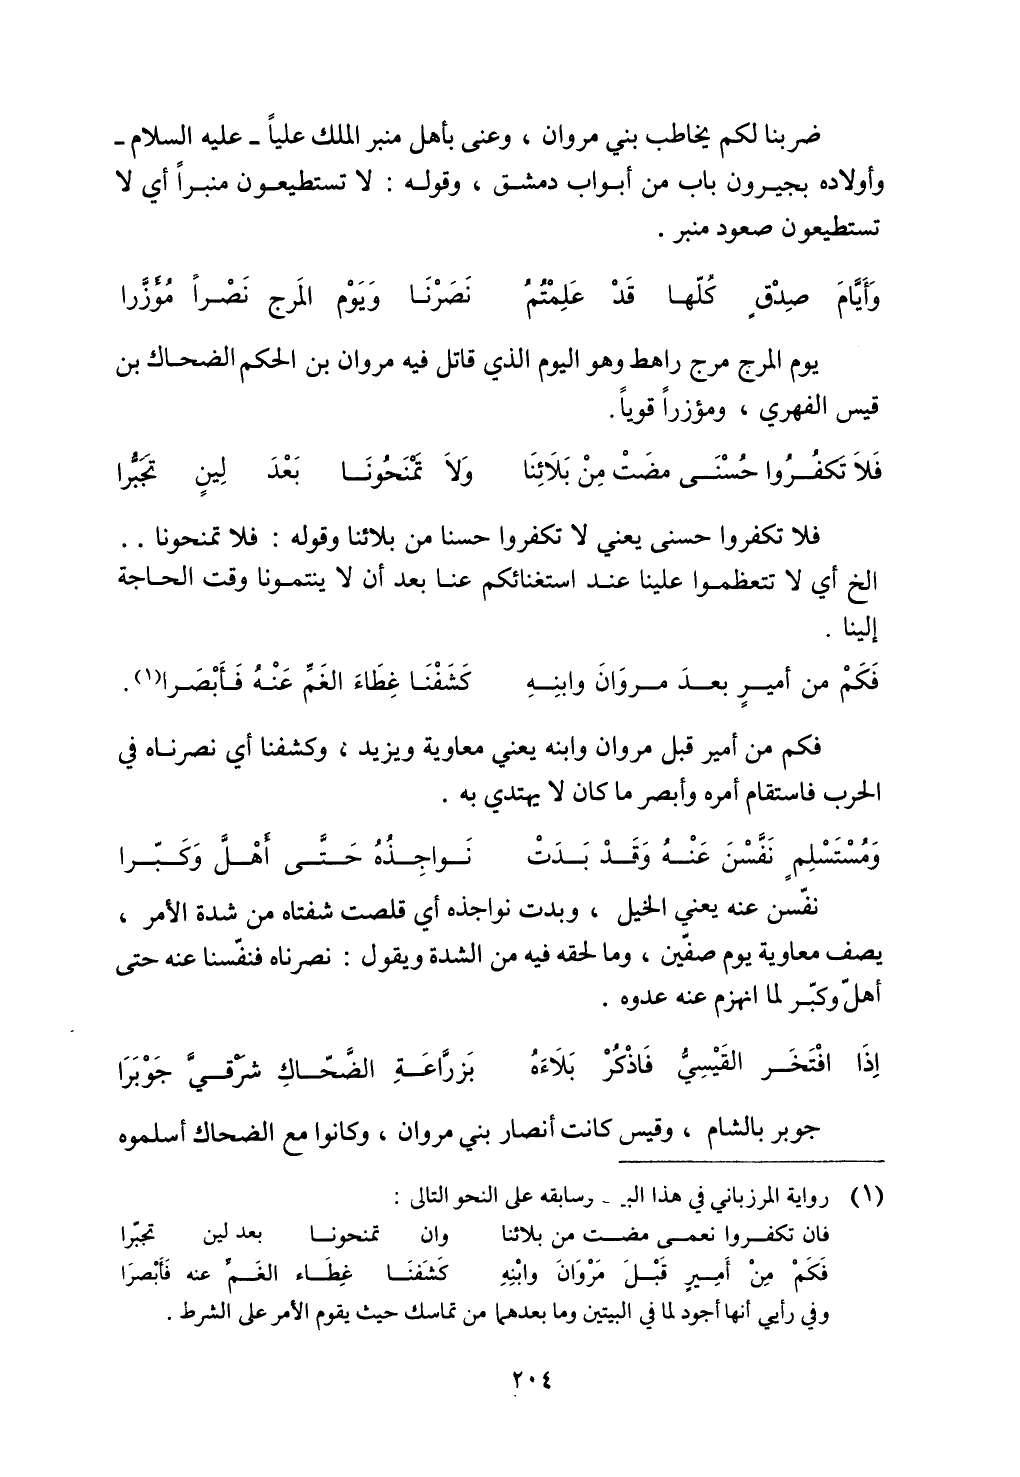 ضربنا لكم يخاطب بني مروان ، وعنى بأهل منبر الملك علياً ـ عليه السلام ـ
وأولاده بجيرون باب من أبواب دمشق ، وقوله : لا تستطيعون منبراً أي لا
تستطيعون صعود منبر .
وَأَيَّامَ صِدْقٍ كُلّها قَدْ عَلِمْتُمُ نَصَرْنَا وَيَوْم المَرج نَصْراً مُؤَزَّرا
يوم المرج مرج راهط وهو اليوم الذي قاتل فيه مروان بن الحكم الضحاك بن
قيس الفهري ، ومؤزراً قوياً .
فَلاَ تَكفُرُوا حُسْنَى مضَتْ مِنْ بَلَائِنَا وَلاَ تَمْنَحُونَا بَعْدَ لِينٍ تَجَبُّرا
فلا تكفروا حسنى يعني لا تكفروا حسنا من بلائنا وقوله : فلا تمنحونا . .
الخ أي لا تتعظموا علينا عند استغنائكم عنا بعد أن لا ينتمونا وقت الحاجة
إلينا .
فَكَمْ من أميرٍ بعدَ مروَانَ وابنِهِ كَشَفْنَا غِطَاءَ الغَمِّ عَنْهُ فَأَبْصَرا(١) .
فكم من أمير قبل مروان وابنه يعني معاوية ويزيد ، وكشفنا أي نصرناه في
الحرب فاستقام أمره وأبصر ما كان لا يهتدي به .
وَمُسْتَسْلِمٍ نَفَّسْنَ عَنْهُ وَقَدْ بَدَتْ نَواجِذُهُ حَتَّى أَهْلَّ وَكَبّرا
نفّسن عنه يعني الخيل ، وبدت نواجذه أي قلصت شفتاه من شدة الأمر ،
يصف معاوية يوم صفّين ، وما لحقه فيه من الشدة ويقول : نصرناه فنفّسنا عنه حتى
أهلّ وكبّر لما انهزم عنه عدوه .
إِذَا افْتَخَر القَيْسِيُّ فَاذْكُرْ بَلَاءَهُ بَزرَّاعَةِ الضَّحّاكِ شَرْقيَّ جَوْبَرَا
جوبر بالشام ، وقيس كانت أنصار بني مروان ، وكانوا مع الضحاك أسلموه
(١) رواية المرزباني في هذا وسابقه على النحو التالى :
فان تكفروا نعمى مضت من بلائنا وان تمنحونا بعد لين تجبّرا
فَكَمْ مِنْ أَمِيرٍ قَبْلَ مَرْوَانَ وابْنِهِ كَشَفنَا غِطَاء الغَمِّ عنه فَأَبْصرَا
وفي رأيي أنها أجود لما في البيتين وما بعدهما من تماسك حيث يقوم الأمر على الشرط .
٢٠٤